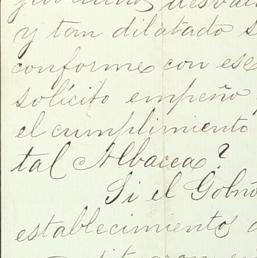 y tan dilatado s
conforme con ese
solícito empeño
el cumplimiento
tal Albacea?
Si el Gobno
establecimiento